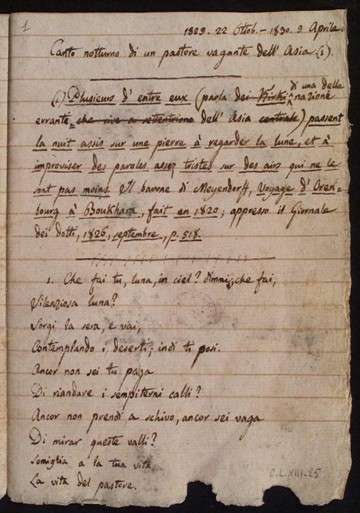 1
1829. 22 Ottob. - 1830. 9 Aprile.
Canto notturno di un pastore vagante dell' Asia (1).
(1) Plusieurs d' entre eux (parla dei Kirkis nazione
di una delle
errante, che vive a settentrione dell' Asia centrale) passent
la nuit assis sur une pierre à regarder la lune, et à
improviser des paroles assez tristes sur des airs qui ne le
sont pas moins. Il barone di Meyendorff, Voyage d' Oren-
bourg à Boukhara, fait en 1820; appresso il Giornale
dei dotti, 1826, septembre, p. 518.
1. Che fai tu, luna, in ciel? dimmi, che fai,
Silenziosa luna?
Sorgi la sera, e vai,
Contemplando i deserti; indi ti posi.
Ancor non sei tu paga
Di riandare i sempiterni calli?
Ancor non prendi a schivo, ancor sei vaga
Di mirar queste valli?
Somiglia a la tua vita
La vita del pastore.
C.L.XIII.25